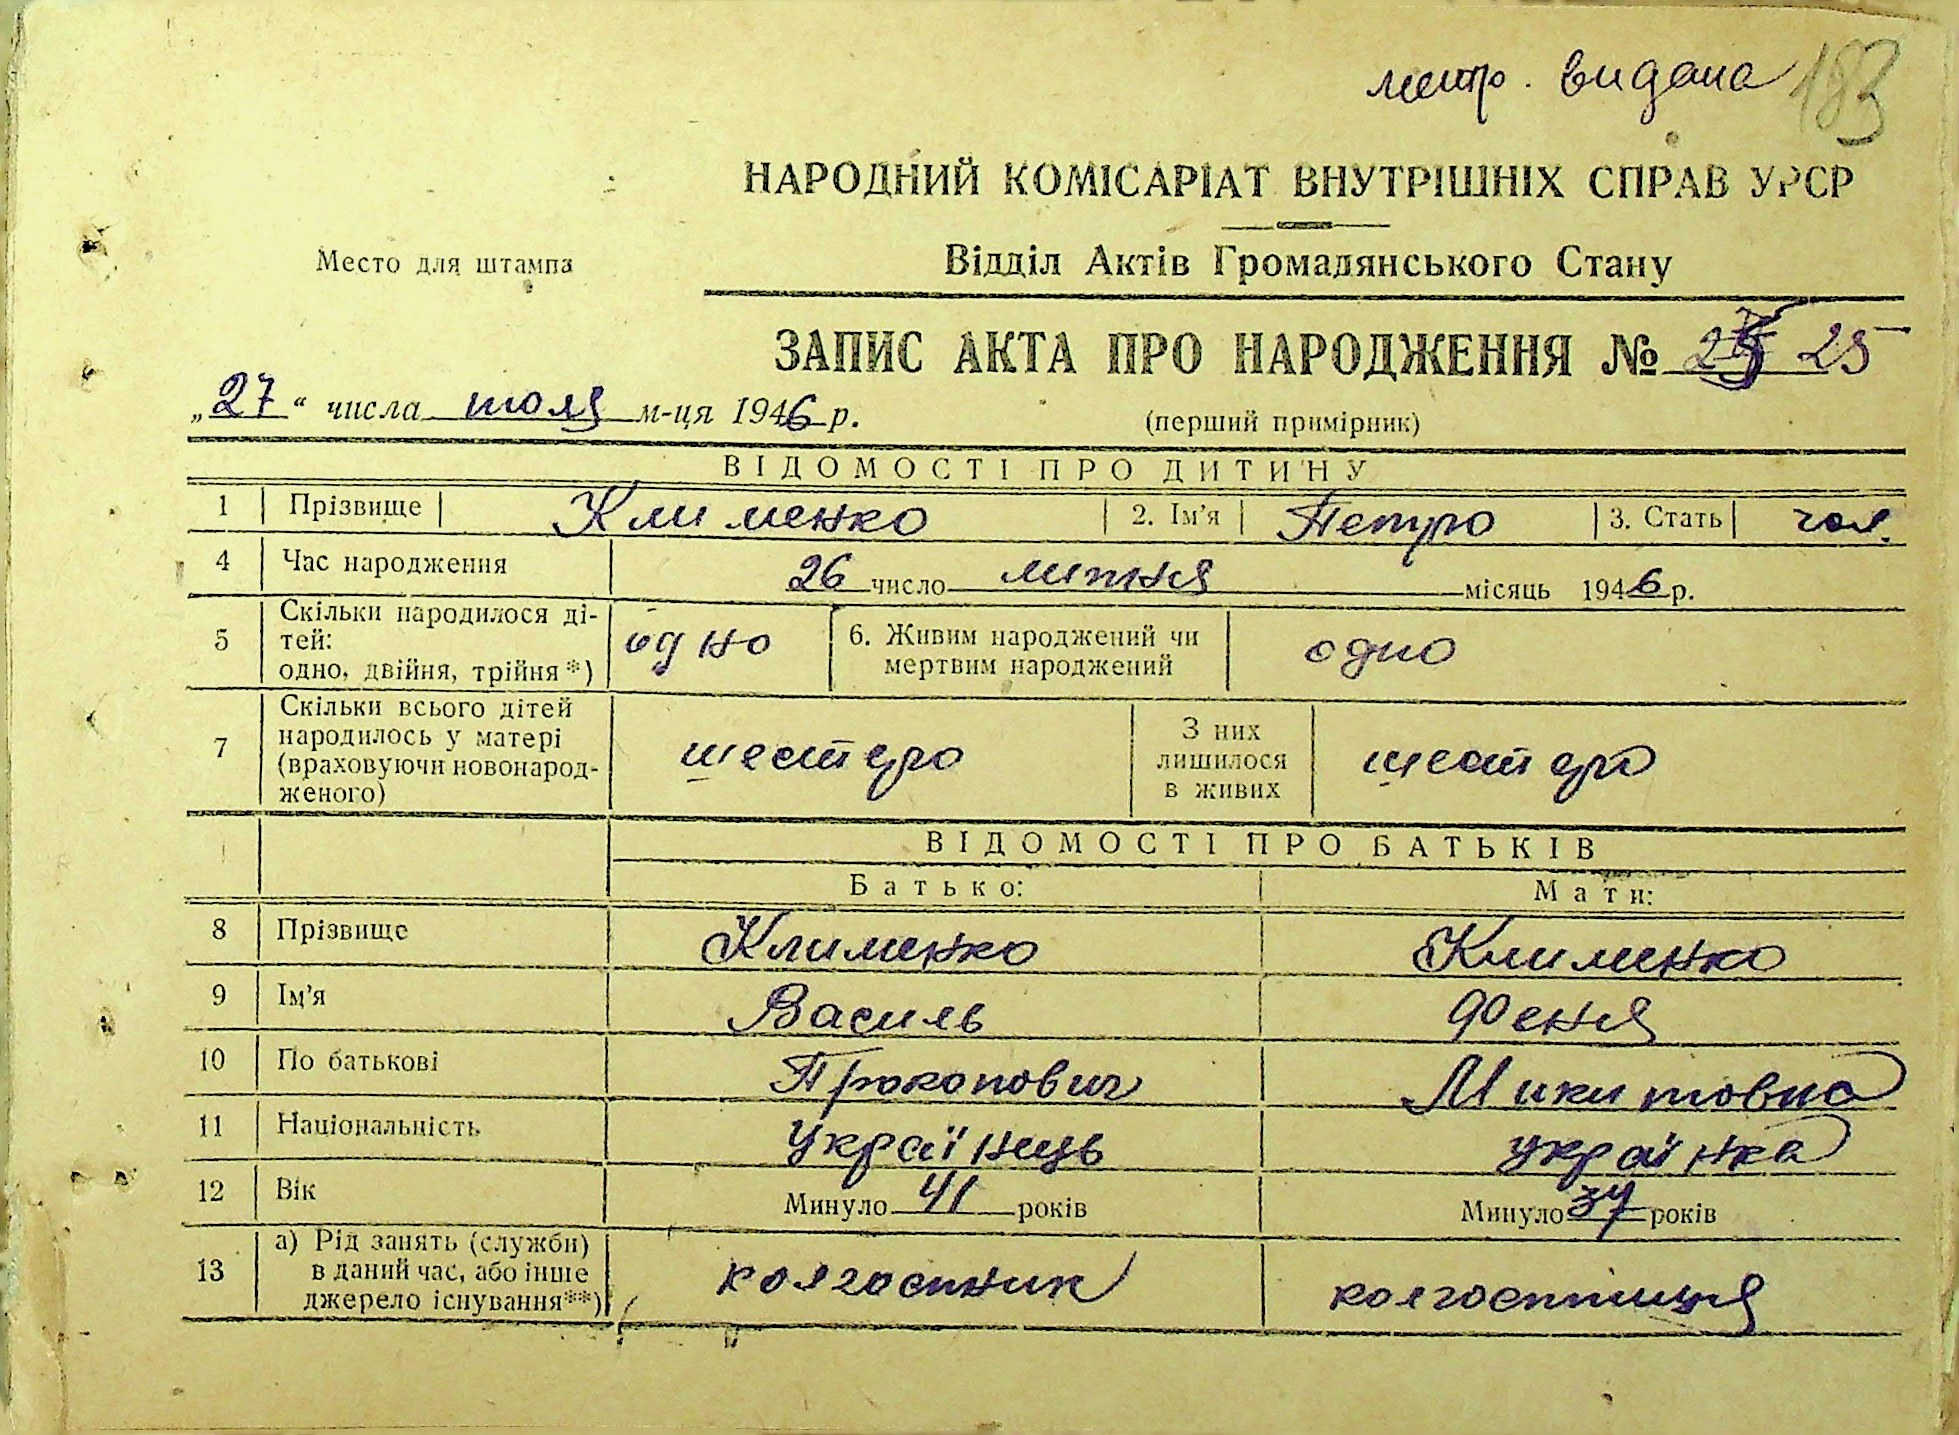 метр. видана 183
НАРОДНИЙ КОМІСАРІАТ ВНУТРІШНІХ СПРАВ УРСР
Место для штампа
Відділ Актів Громадянського Стану
ЗАПИС АКТА ПРО НАРОДЖЕННЯ № 25
„27“ числа июля м-ця 1946 р.
(перший примірник)
ВІДОМОСТІ ПРО ДИТИНУ
1 Прізвище Клименко 2. Ім'я Петро 3. Стать чол.
4 Час народження 26 число липня місяць 1946 р.
5 Скільки народилося ді-
тей:
одно, двійня, трійня*) одно
6. Живим народжений чи
мертвим народжений одно
7 Скільки всього дітей
народилось у матері
(враховуючи новонарод-
женого) шестеро
З них
лишилося
в живих шестеро
ВІДОМОСТІ ПРО БАТЬКІВ
Батько: Мати:
8 Прізвище Клименко Клименко
9 Ім'я Василь Феня
10 По батькові Прокопович Микитовна
11 Національність Українець українка
12 Вік Минуло 41 років Минуло 37 років
13 а) Рід занять (служби)
в даний час, або інше
джерело існування**) колгоспник колгоспниця